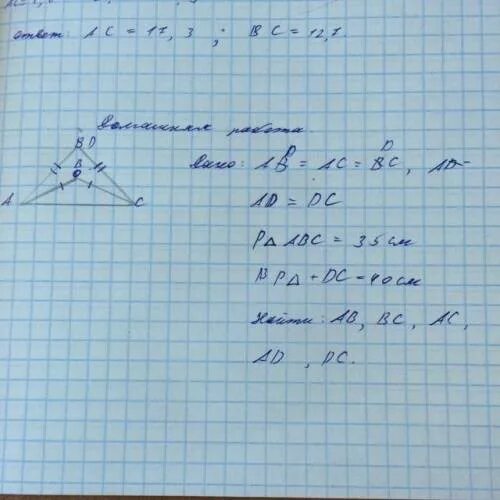 Ответ: AC = 17,3 ; BC = 12,7.
Домашняя работа.
B D
B
A
C
Дано: AB = AC = BC, AD
D D
AD = DC
P△ ABC = 35 см
P△ + DC = 40 см
Найти: AB, BC, AC,
AD, DC.